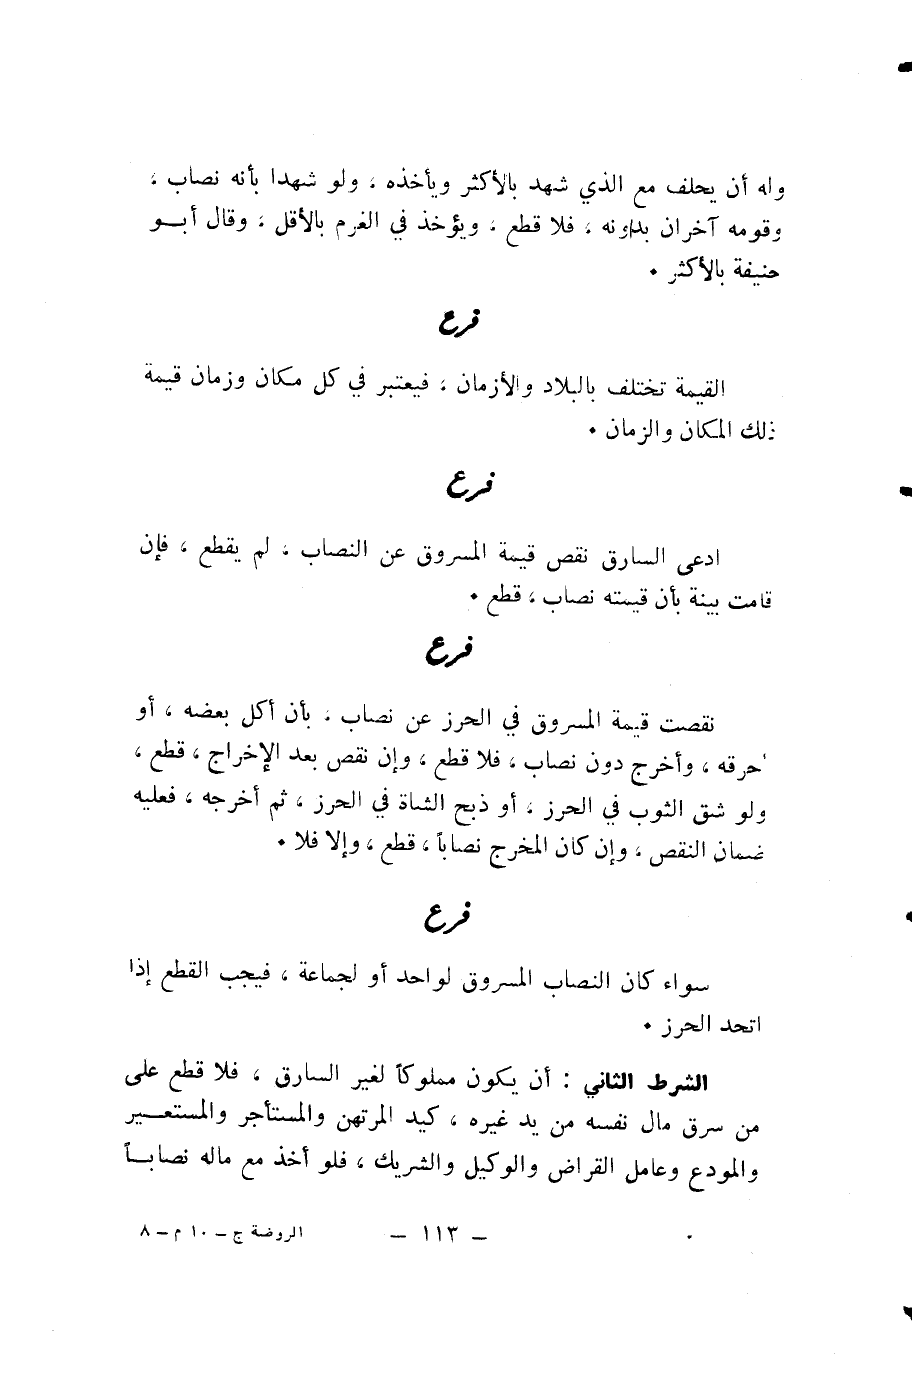 وله أن يحلف مع الذي شهد بالأكثر ويأخذه ، ولو شهدا بأنه نصاب ،
وقومه آخران بدونه ، فلا قطع ، ويؤخذ في الغرم بالأقل ، وقال أبــو
حنيفة بالأكثر •
فرع
القيمة تختلف بالبلاد والأزمان ، فيعتبر في كل مكان وزمان قيمة
ذلك المكان والزمان •
فرع
ادعى السارق نقص قيمة المسروق عن النصاب ، لم يقطع ، فإن
قامت بينة بأن قيمته نصاب ، قطع •
فرع
نقصت قيمة المسروق في الحرز عن نصاب ، بأن أكل بعضه ، أو
أحرقه ، وأخرج دون نصاب ، فلا قطع ، وإن نقص بعد الإخراج ، قطع ،
ولو شق الثوب في الحرز ، أو ذبح الشاة في الحرز ، ثم أخرجه ، فعليه
ضمان النقص ، وإن كان المخرج نصاباً ، قطع ، وإلا فلا •
فرع
سواء كان النصاب المسروق لواحد أو لجماعة ، فيجب القطع إذا
اتحد الحرز •
الشرط الثاني : أن يكون مملوكاً لغير السارق ، فلا قطع على
من سرق مال نفسه من يد غيره ، كيد المرتهن والمستأجر والمستعــير
والمودع وعامل القراض والوكيل والشريك ، فلو أخذ مع ماله نصابــاً
– ١١٣ –
الروضة ج – ١٠ م – ٨